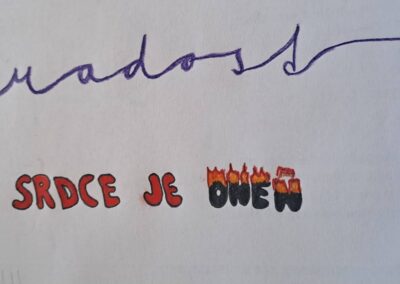 radost
SRDCE JE OHEŇ